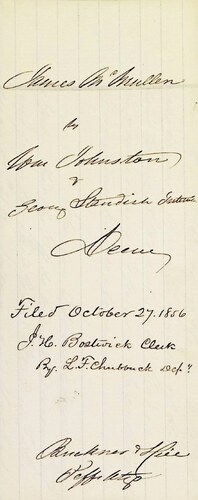 James McMullen
vs
Wm Johnston
&
Georg Standish
Filed October 27. 1856
J. H. Bostwick Clerk
By. L. F. Chubbuck Dep^y
Buckner &
Peffs Atty